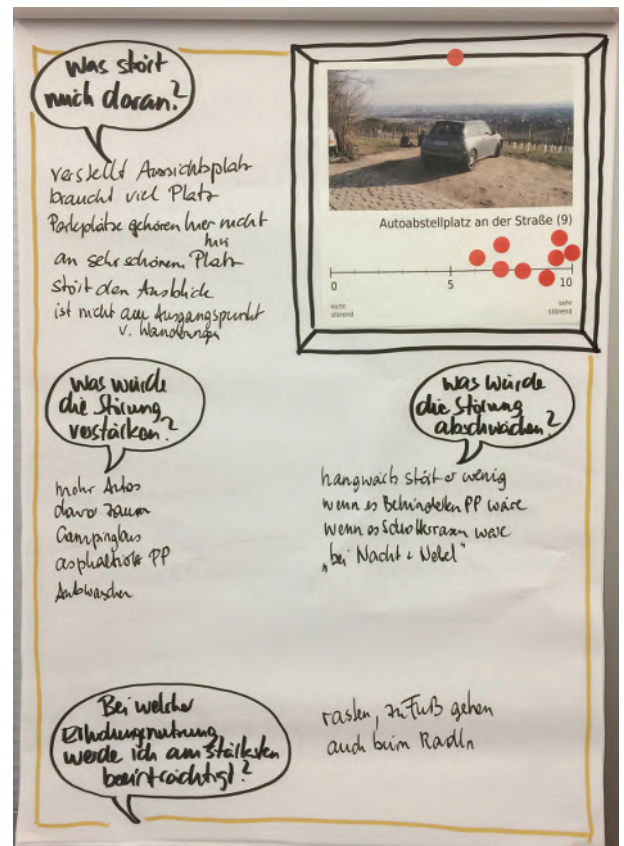 Was stört
mich daran?
verstellt Aussichtsplatz
braucht viel Platz
Parkplätze gehören hier nicht
hin
an sehr schönem Platz
stört den Ausblick
ist nicht am Ausgangspunkt
v. Wanderungen
Autoabstellplatz an der Straße (9)
0 5 10
nicht
störend
sehr
störend
Was würde
die Störung
verstärken?
mehr Autos
davor Zaun
Campingbus
asphaltierte PP
Autowaschen
Was würde
die Störung
abschwächen?
stört er wenig
wenn es Behinderten PP wäre
wenn es Schotterrasen wäre
„bei Nacht & Nebel"
Bei welcher
Erholungsnutzung
werde ich am stärksten
beeinträchtigt?
rasten, zu Fuß gehen
auch beim Radln